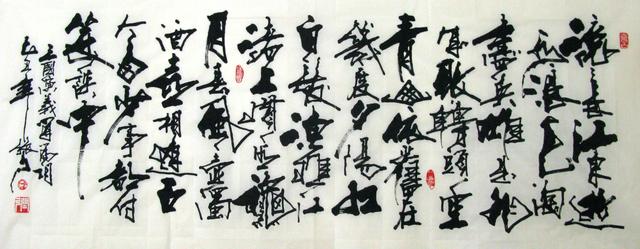 滚滚長江東逝
水浪花淘
盡英雄是非
成敗轉頭空
青山依舊在
幾度夕陽紅
白髮漁樵江
渚上慣看秋
月春風一壺濁
酒喜相逢古
今多少事都付
笑談中
三國演義
年